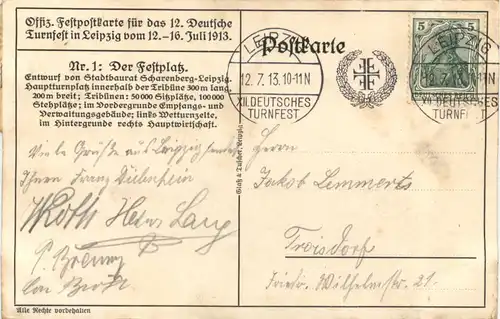 Offiz. Festpostkarte für das 12. Deutsche
Turnfest in Leipzig vom 12.-16. Juli 1913.
Nr. 1: Der Festplatz.
Entwurf von Stadtbaurat Scharenberg-Leipzig.
Hauptturnplatz innerhalb der Tribüne 300 m lang,
200 m breit; Tribünen: 50000 Sitzplätze, 100000
Stehplätze; im Vordergrunde Empfangs- und
Verwaltungsgebäude; links Wetturnzelte,
im Hintergrunde rechts Hauptwirtschaft.
Viele Grüße aus Leipzig sendet
Ihnen Franz
Roth Hans Lang
Alle Rechte vorbehalten
Postkarte
LEIPZIG
12.7.13.10-11N
XII.DEUTSCHES
TURNFEST
5 5
LEIPZIG
12.7.13.10-11N
XII.DEUTSCHES
TURNFEST
Herrn
Jakob Lemmertz
Troisdorf
Friedr. Wilhelmstr. 21.